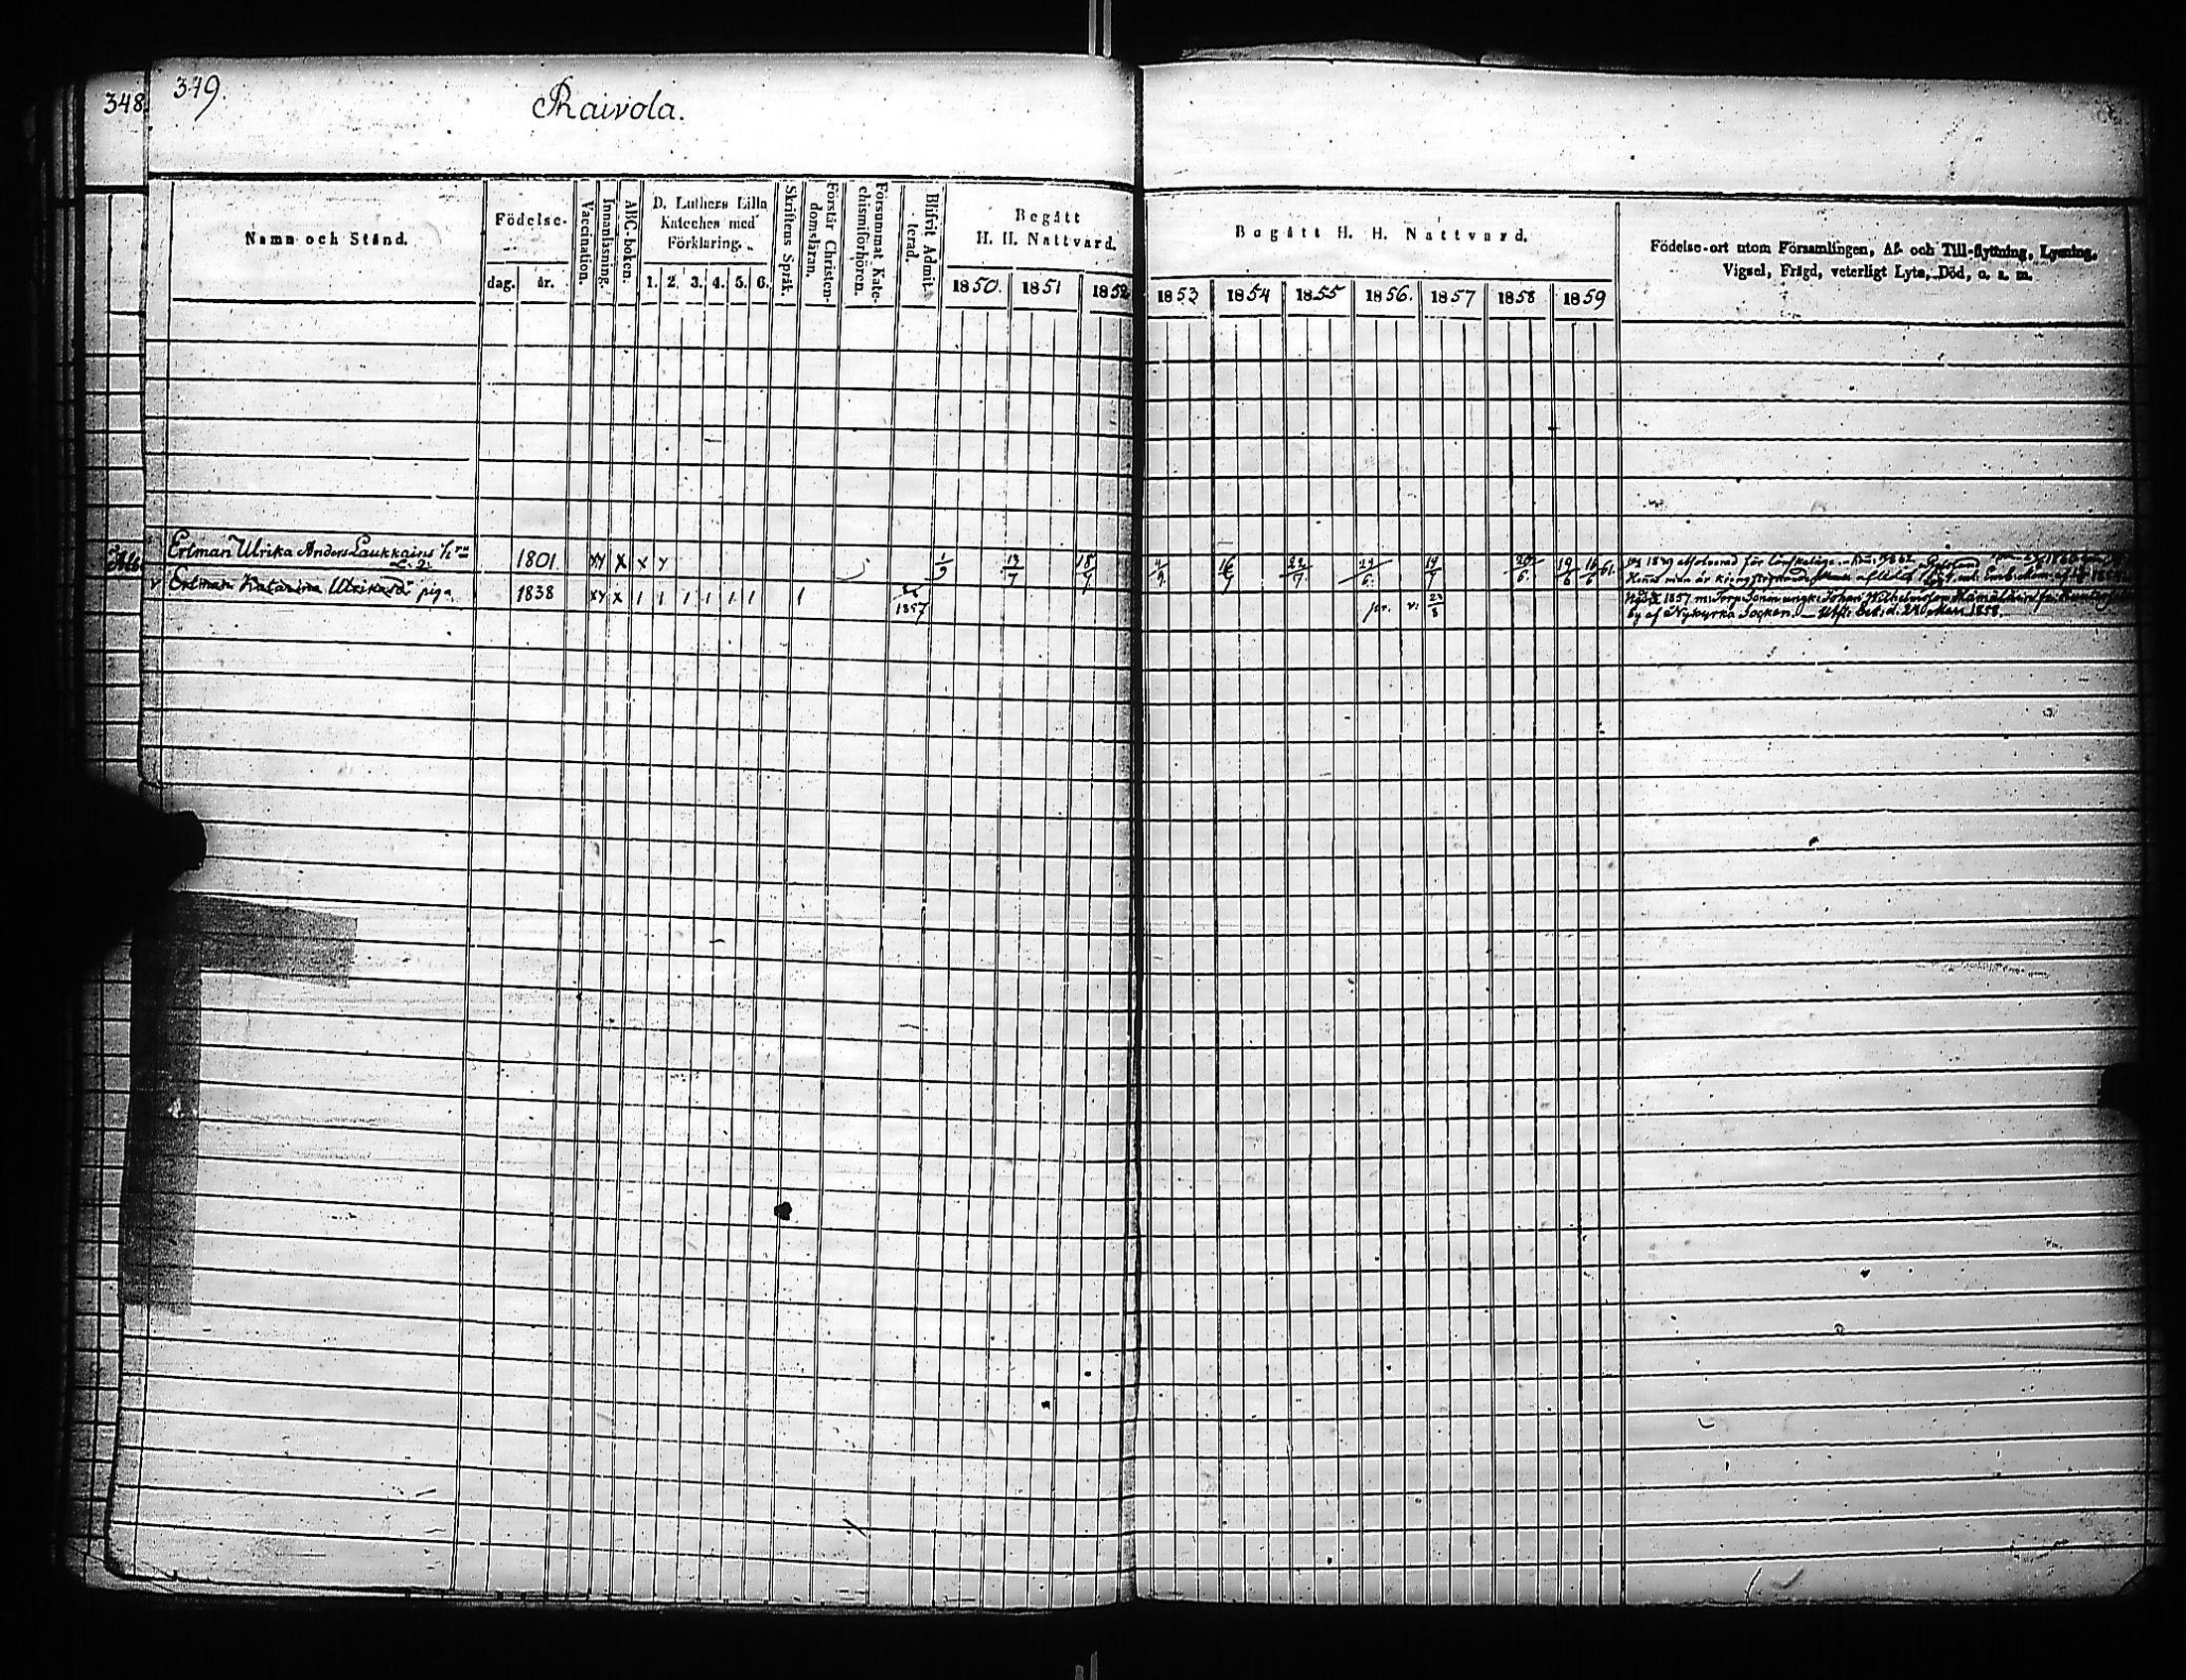 348.
349.
Raivola.
Namn och Stånd.
Födelse-
dag. år.
Vaccination.
Innanläsning.
ABC-boken.
D. Luthers Lilla
Kateches med
Förklaring.
1. 2. 3. 4. 5. 6.
Skriftens Språk.
Förstår Christen-
domsläran.
Försummat Kate-
chismiförhören.
Blifvit Admit-
terad.
Begått
H. H. Nattvard.
1850. 1851 1852
Begått H. H. Nattvard.
1853 1854 1855 1856. 1857 1858 1859
Födelse-ort utom Församlingen, Af- och Till-flyttning, Lysning,
Vigsel, Frägd, veterligt Lyte, Död, o. s. m.
Erlman Ulrika Anders Laukkains 1801 xy x x y 1/9 13/7 18/7 4/9 16/7 22/7 24/6 19/7 20/6 19/6 16/6 61. 1839 för
Hennes man är
Erlman Katarina Ulrikasdr piga 1838 xy x 1 1 1 1 1 1 1 1857 23/8 1857 m. Torp. Sonen ungk: Johan Wilhelmsson
by af Nykyrka Socken. Utfl: Bet: d. 24 Mars 1858.